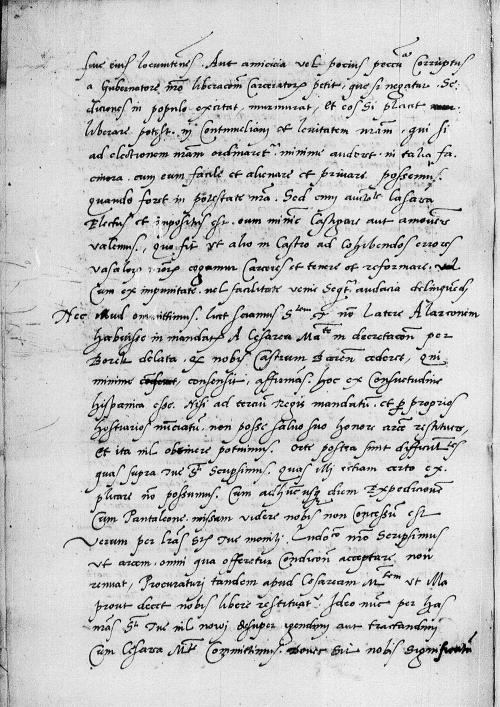 sive eius locumtenens. Aut amicicia vel pocius Corruptus
a Gubernatore nro liberacõem Carceratorũ petit, que si negatur Se-
diciones in populo excitat, murmurat, et eos si placet
liberare potest. in Contumeliam et levitatem nram, qui si
ad electionem nram ordinaret, minime auderet in talia fa-
cinora, cum eum facile et alienare et privare possemus
quando foret in potestate nra. Sed cum Caesarea
Electus et impositus est, eum minime Castigare aut amovere
valemus, quo fit ut alio in Castro ad Cohibendos errores
vasalorũ cogamur Carceres et tenere et reformare,
Cum ex impunitate, vel facilitate venie Seqr audacia delinquendi
Nec illud omittimus, licet Sciamus S.tem T. nõ Latere Alarconem
habuisse in mandatis A Cesarea Mate in decretacõne per
delata, ex nobis Castrum cederet, qui
minime consensit, affirmans hoc ex Consuetudine
hispanica esse. Nisi ad Regis mandatum, et p proprios
hostiarios nunciatu, non posse salvo suo honore arcem restituere,
et ita nil obtinere potuimus. Orte postea sunt difficultates
quas supra Tue Sti Scripsimus, quas illi etiam certo ex-
plicare nõ possumus, Cum adhuc usq diem Expedicionem
Cum Pantaleone missam videre nobis non Concessum est
Verum per lras Stis Tue monitj, Ludco nro Scripsimus
ut arcem, omni qua offeretur Condicione acceptare non
renuat, Procuraturi tandem apud Cesaream Mtem ut
prout decet nobis libere restituat. Ideo nunc per has
nras Sti Tue nil novi desuper agendum aut tractandum
Cum Cesarea Mte Committimus. Donec Sic nobis significatũ